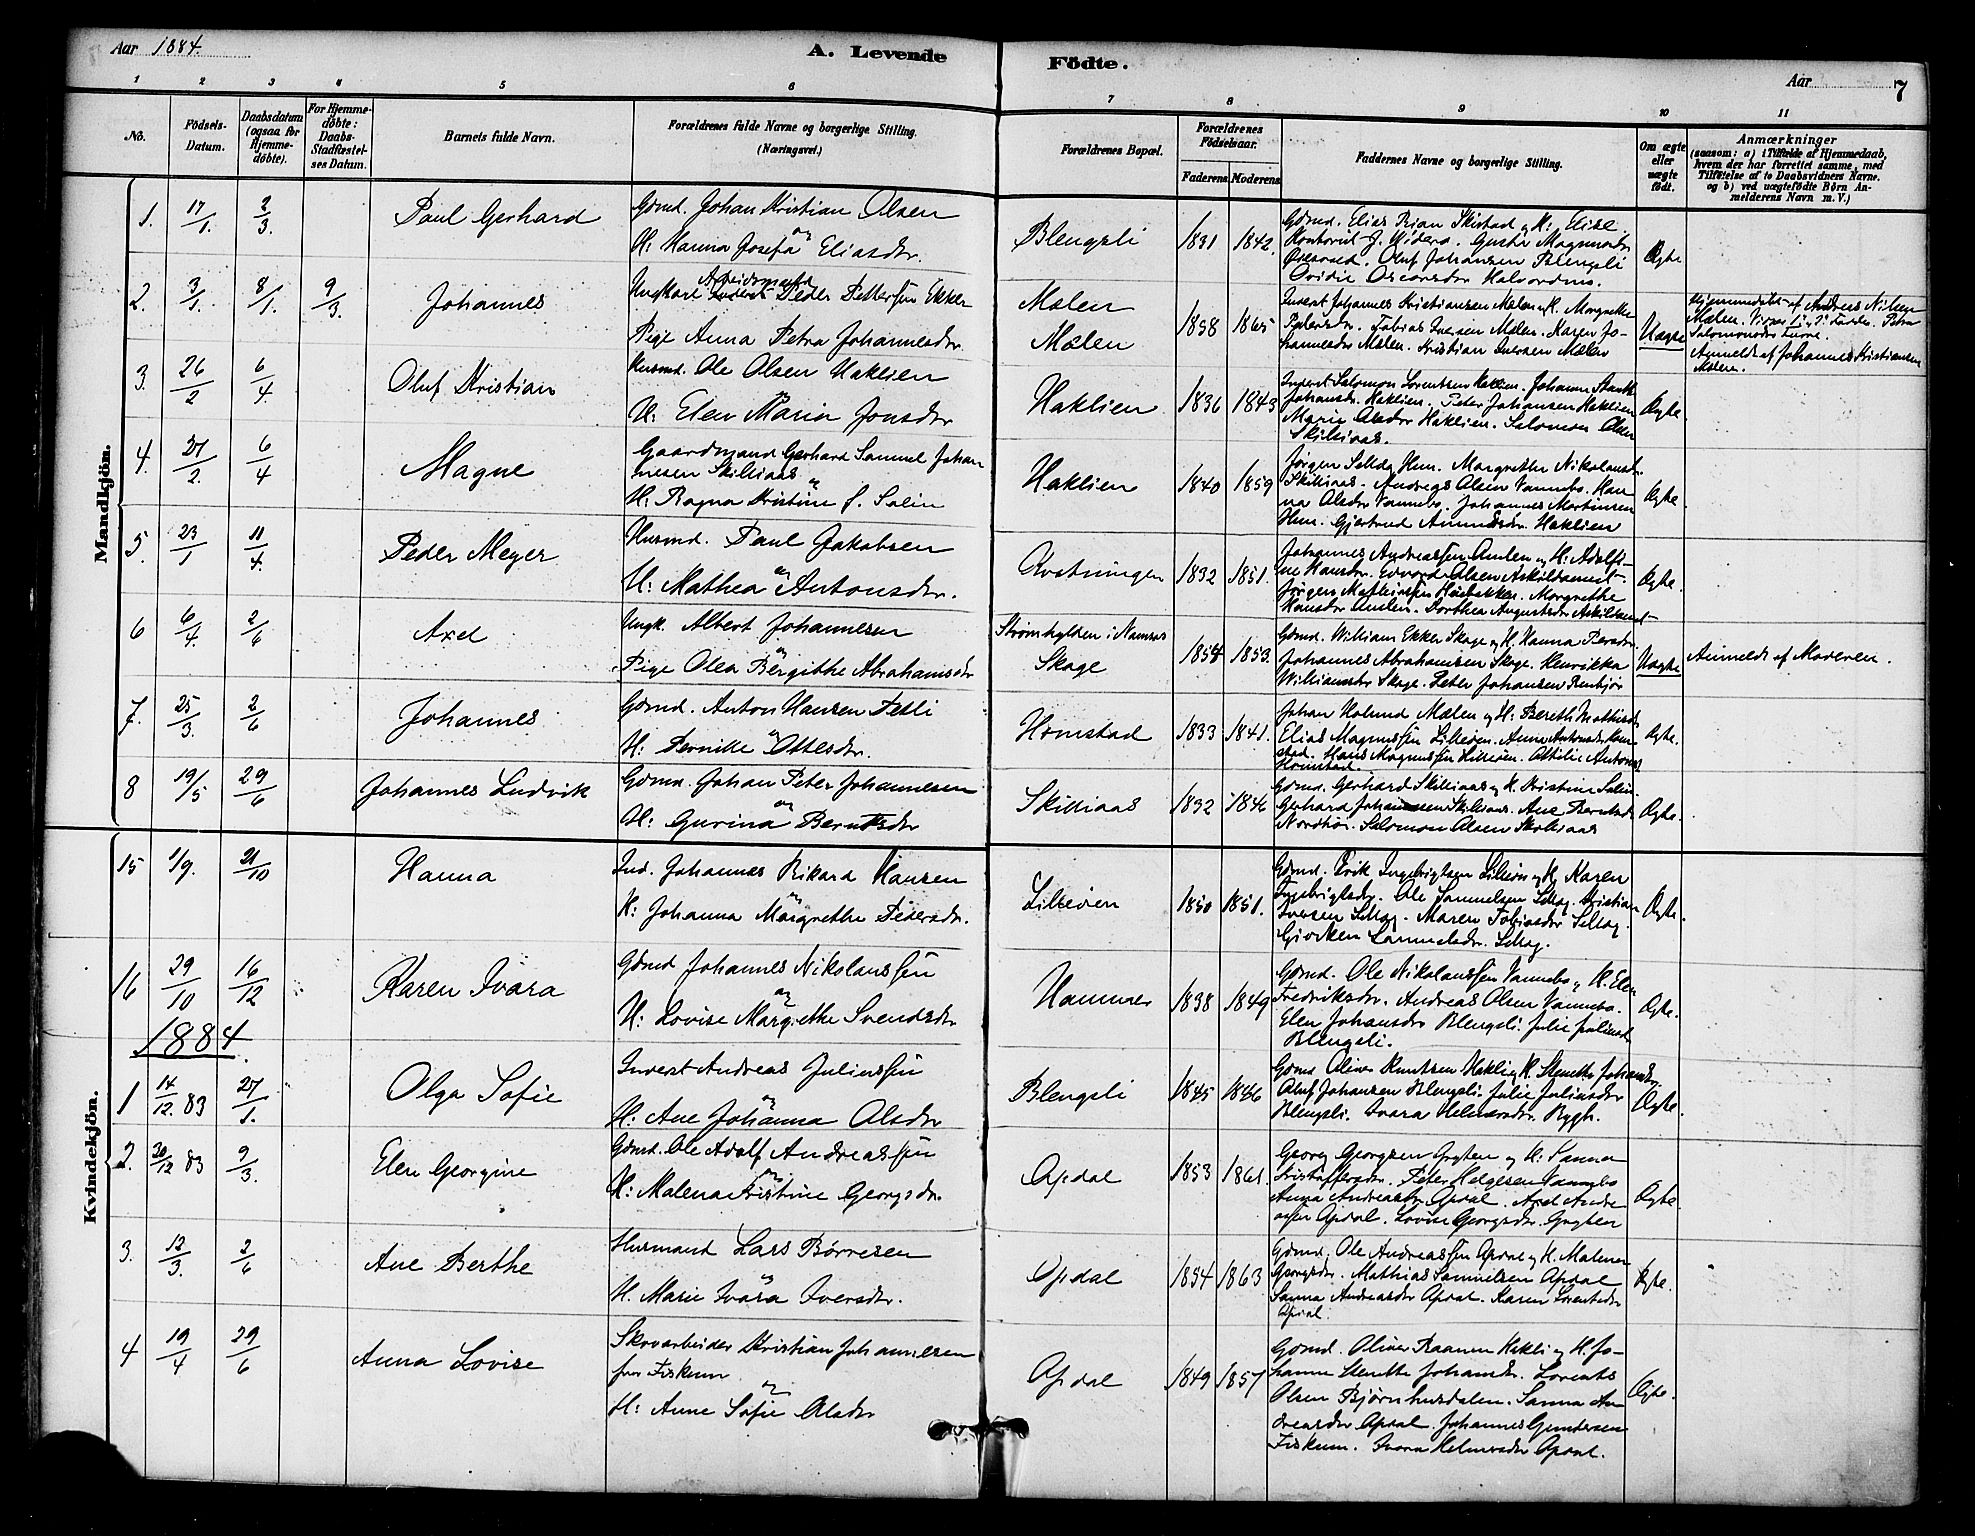 Aar 1884.
A. Levende Födte.
Aar
7
1 2 3 4 5 6 7 8 9 10 11
No.
Födsels-Datum.
Daabsdatum (ogsaa for Hjemmedöbte).
For Hjemmedöbte: Daabs-Stadfæstelses Datum.
Barnets fulde Navn.
Forældrenes fulde Navne og borgerlige Stilling. (Næringsvei.)
Forældrenes Bopæl.
Forældrenes Födselsaar.
Faderens Moderens
Faddernes Navne og borgerlige Stilling.
Om ægte eller uægte födt.
Anmærkninger (saasom: a) i Tilfælde af Hjemmedaab, hvem der har forrettet samme, med Tilföielse af to Daabsvidners Navne. og b) ved uægtefödte Börn Anmelderens Navn m. V.)
Mandkjön.
1. 17/1. 2/3. Paul Gerhard
Gdmd. Johan Kristian Olsen
og
H: Hanna Josefa Eliasdr.
Blengsli 1831 1842.
Gdmd. Elias Brian Skistad og H: Elise
Oluf Johansen Blengsli
Ægte
2. 3/1. 8/1. 9/3. Johannes
Arbeidsmand
Ungkarl Peder Pettersen Ekker
Pige Anna Petra Johannesdr.
Mælen
Mælen
1858 1865
Inderst Johannes Kristiansen Mælen og H. Margrethe
Pedersdr. Tobias Iversen Mælen. Karen Jo-
hannesdr Mælen. Kristian Iversen Mælen
Uægte
Hjemmedøbt af Andreas Nilsen
Mælen.
Anmeldt af Johannes Kristiansen
Mælen.
3. 26/2 6/4. Oluf Kristian
Husmd. Ole Olsen Haklien
H: Elen Maria Jonsdr
Haklien 1836 1843
Inderst Salomon Lorentsen Haklien. Johanna
Johansdr. Haklien. Peter Johansen Haklien
Marie Olsdr Haklien. Salomon Olsen
Skilliaas.
Ægte.
4. 27/2. 6/4 Magne
Gaardmand Gerhard Samuel Johan
nesen Skilliaas
og
H: Ragna Kristine f. Salin
Haklien 1840 1859
Margrethe Nikolausdr.
Skilliaas. Andreas Olsen Vannebo. Han
na Olsdr Vannebo. Johannes Martinsen
Hem. Gjertrud Haklien
Ægte.
5. 23/1 11/4. Peder Meyer
Husmd. Paul Jakobsen
og
H: Mathea Antonsdr.
1832 1851.
Johannes Andreassen Amlen og H: Adolfi-
ne Hansdr. Edvard Olsen
Jørgen Margrethe
Hansdr Amlen. Dorthea Augustsdr
Ægte.
6 6/4. 2/6 Axel
Ungk. Albert Johannesen
og
Pige Olea Bergithe Abrahamsdr
Strømhylden i Namsos
Skage
1854 1853.
Gdmd. William Ekker Skage og H. Hanna
Johannes Abrahamsen Skage. Henrikka
Williamsdr Skage. Peter Johansen
Uægte
Anmeldt af Moderen.
7. 25/3. 2/6 Johannes
Gdmd. Anton Hansen Fesli
og
H: Pernille Ottesdr.
Homstad 1833 1841.
Mælen og H: Bereth
Elias Magnussen Lilleøen. Anne Antonsdr Hom
stad. Hans Magnussen Lilleøen.
Homstad.
Ægte.
8 19/5 29/6 Johannes Ludvik
Gdmd. Johan Peter Johannesen
og
H: Gurina Berntsdr
Skilliaas 1832 1846
Gdmd. Gerhard Skilliaas og H. Kristine Salin.
Gerhard Johannesen Skilliaas. Ane
Salomon Olsen Skilliaas
Ægte.
Kvindekjön.
15 1/9. 21/10 Hanna
Ind. Johannes Rikard Hansen
og
H: Johanna Margrethe Pedersdr.
Lilleøen 1850 1851.
Gdmd. Erik Ingebrigtsen Lilleøen og H. Karen
Ingebrigtsdr. Ole Samuelsen Kristian
Iversen Maren Tobiasdr
Samuelsdr.
Ægte.
16 29/10 16/12 Karen Ivara
Gdmd Johannes Nikolaussen
og
H: Lovise Margrethe Svendsdr
Hammer 1838 1849
Gdmd. Ole Nikolaussen Vannebo og H. Elen
Fredriksdr. Andreas Olsen Vannebo.
Elen Johansdr Blengsli. Julie Juliusdr
Blengsli.
Ægte.
1884.
1 14/12. 83 27/1. Olga Sofie
Inderst Andreas Juliussen
og
H: Ane Johanna Olsdr
Blengsli 1845 1846
Gdmd Oliver Knutsen Hakli og H. Johansdr.
Oluf Johansen Blengsli. Julie Juliusdr
Blengsli. Ivara Helmersdr.
Ægte.
2. 30/12 83 9/3. Elen Georgine
Gdmd. Ole Adolf Andreassen
og
H: Malena Kristine Georgsdr.
Opdal 1853 1861.
Georg Georgsen og H: Sanna
Kristoffersdr. Peter Helgesen Vannebo
Anna Andreasdr Opdal. Axel Andre
asen Opdal. Lovise Georgsdr.
Ægte.
3. 12/3. 2/6 Ane Berthe
Husmand Lars Børresen
og
H. Marie Ivara Iversdr.
Opdal 1854 1863
Gdmd. Ole Andreassen Opdal og H. Malena
Georgsdr. Mathias Samuelsen Opdal
Sanna Andreasdr Opdal. Karen Lorentsdr
Opdal.
Ægte.
4 19/4 29/6 Anna Lovise
Skovarbeider Kristian Johannesen
fra Fiskum
og
H: Anne Sofie Olsdr
Opdal 1849 1857
Gdmd. Oliver Hakli og H. Jo-
hanna Johansdr. Lorents
Olsen Bjørnhusdalen. Sanna An
dreasdr Opdal. Johannes Gundersen
Fiskum. Ivara Helmersdr Opdal.
Ægte.